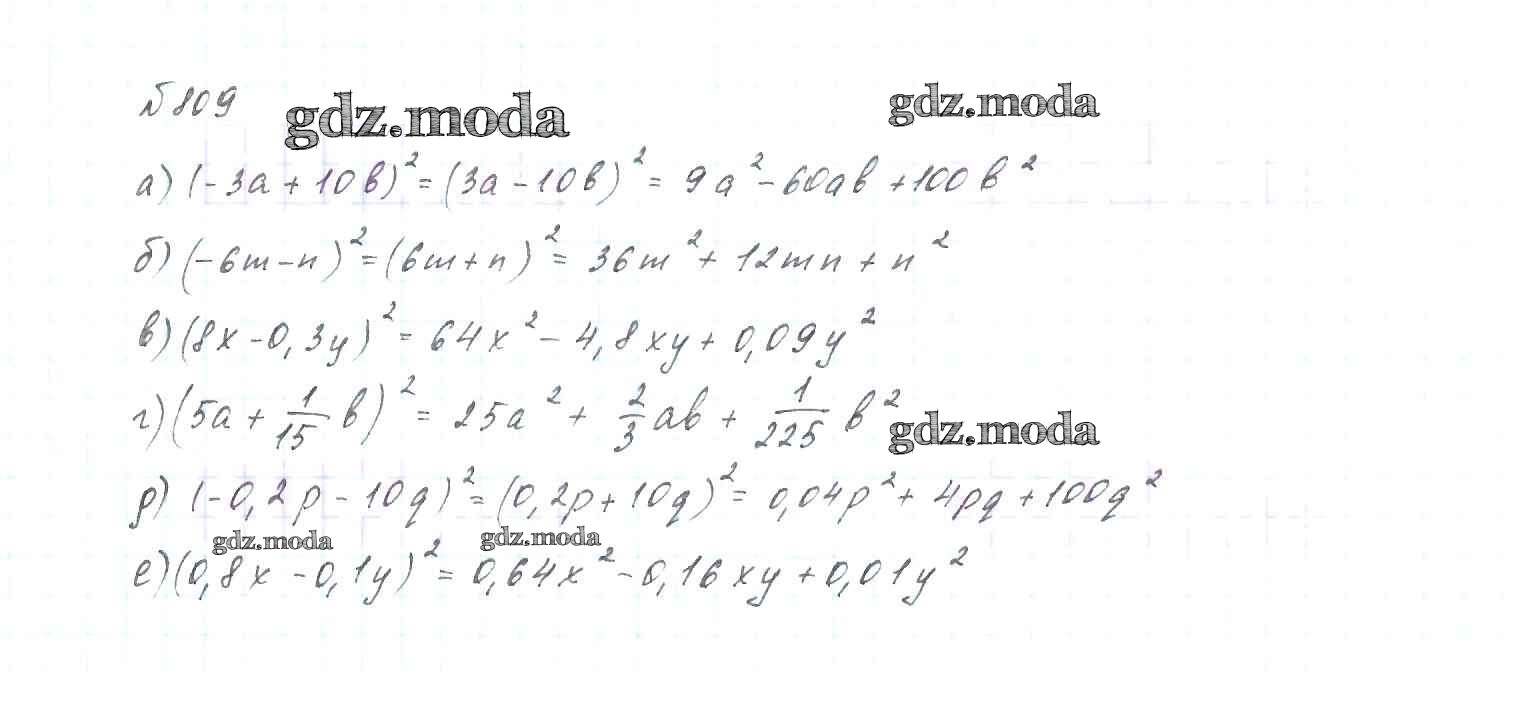 №809
gdz.moda
gdz.moda
а) (-3a + 10b)² = (3a - 10b)² = 9a² - 60ab + 100b²
б) (-6m - n)² = (6m + n)² = 36m² + 12mn + n²
в) (8x - 0,3y)² = 64x² - 4,8xy + 0,09y²
г) (5a + 1/15 b)² = 25a² + 2/3 ab + 1/225 b²
gdz.moda
д) (-0,2p - 10q)² = (0,2p + 10q)² = 0,04p² + 4pq + 100q²
gdz.moda
gdz.moda
е) (0,8x - 0,1y)² = 0,64x² - 0,16xy + 0,01y²